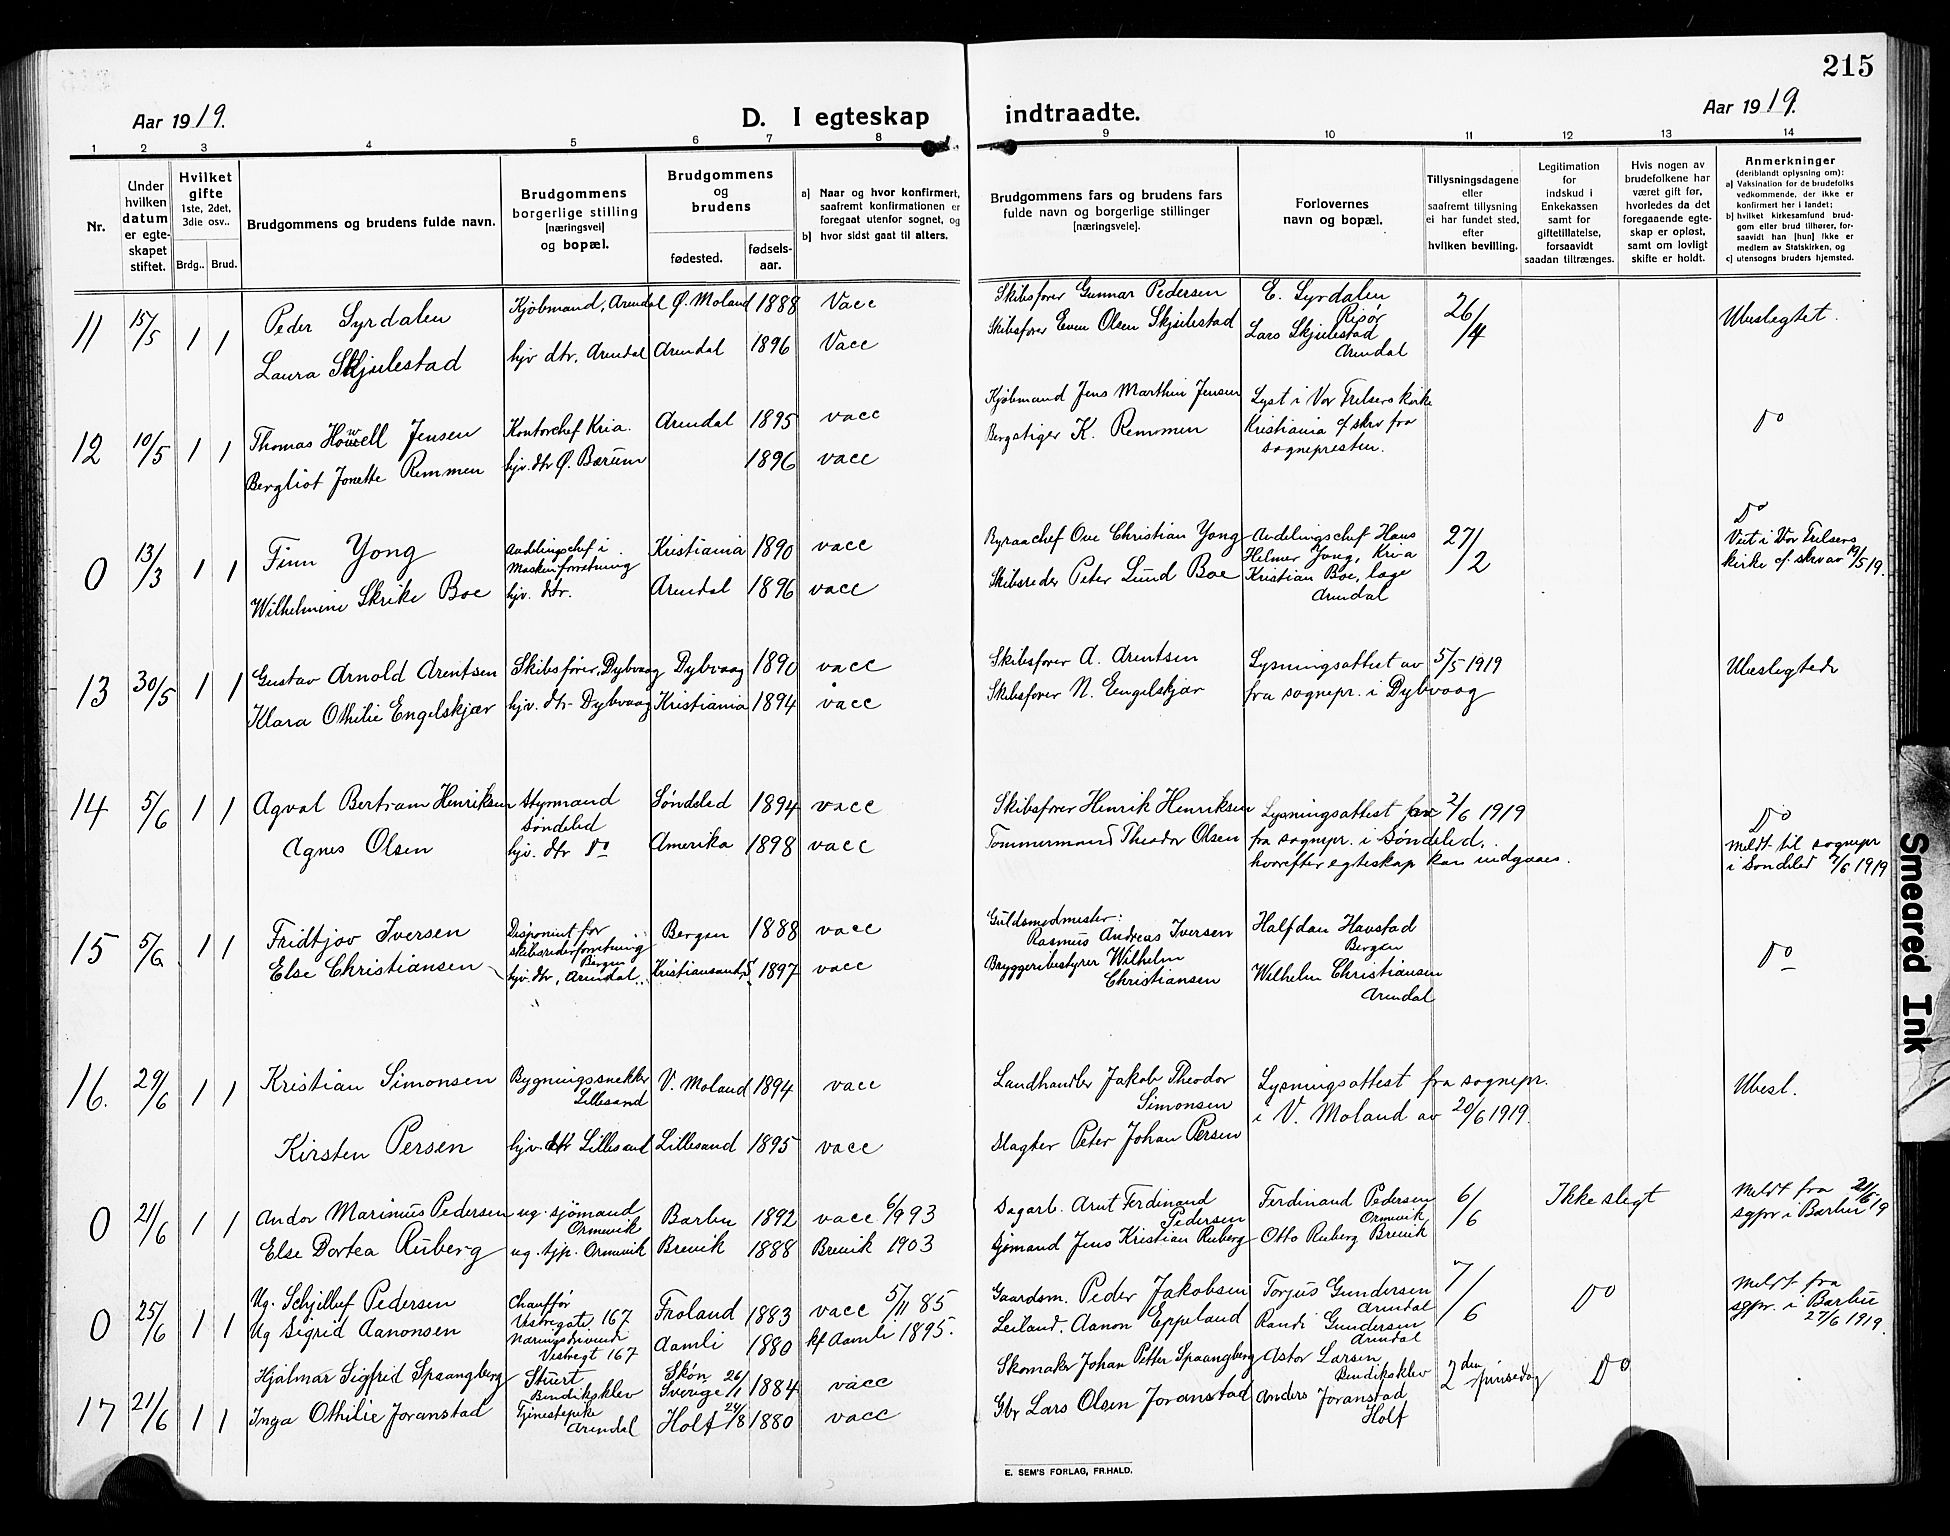 215
Aar 1919.
D. I egteskap indtraadte.
Aar 1919.
1 2 3 4 5 6 7 8 9 10 11 12 13 14
Nr.
Under hvilken datum er egteskapet stiftet.
Hvilket gifte 1ste, 2det, 3die osv..
Brdg.. Brud.
Brudgommens og brudens fulde navn.
Brudgommens borgerlige stilling [næringsvei] og bopæl.
Brudgommens og brudens
fødested.
fødsels-aar.
a) Naar og hvor konfirmert, saafremt konfirmationen er foregaat utenfor sognet, og
b) hvor sidst gaat til alters.
Brudgommens fars og brudens fars fulde navn og borgerlige stillinger [næringsveie].
Forlovernes navn og bopæl.
Tillysningsdagene eller saafremt tillysning ei har fundet sted, efter hvilken bevilling.
Legitimation for indskud i Enkekassen samt for giftetillatelse, forsaavidt saadan tiltrænges.
Hvis nogen av brudefolkene har været gift før, hvorledes da det foregaaende egteskap er opløst, samt om lovligt skifte er holdt.
Anmerkninger (deriblandt oplysning om):
a) Vaksination for de brudefolks vedkommende, der ikke er konfirmert her i landet;
b) hvilket kirkesamfund brudgom eller brud tilhører, forsaavidt han [hun] ikke er medlem av Statskirken, og
c) utensogns bruders hjemsted.
11 15/5 1 1 Peder Syrdalen Kjøbmand, Arendal Ø. Moland 1888 Vacc Skibsfører Gunnar Pedersen E. Syrdalen Risør 26/4 Ubeslegtet.
Laura Skjulestad hjv dtr, Arendal Arendal 1896 Vacc Skibsfører Even Olsen Skjulestad Lars Skjulestad Arendal
12 10/5 1 1 Thomas Howell Jensen Kontorchef Kria. Arendal 1895 vacc Kjøbmand Jens Marthin Jensen Lyst i Vor Frelsers kirke Do
Bergliot Jonette Remmen hjv. dtr Ø. Bærum 1896 vacc Bergstiger K. Remmen Kristiania cf skr fra sognepresten.
0 13/3 1 1 Finn Yong Avdelingschef i Maskinforretning Kristiania 1890 vacc Byraachef Ove Christian Yong Avdelingschef Hans Helmer Yong, Kria 27/2 Do
Wilhelmine Skrike Boe hjv. dtr. Arendal 1896 vacc Skibsreder Peter Lund Boe Kristian Boe, læge Arendal Viet i Vor Frelsers kirke cf. skr av 19/5 19.
13 30/5 1 1 Gustav Arnold Arentsen Skibsfører, Dybvaag Dybvaag 1890 vacc Skibsfører A. Arentsen Lysningsattest av 5/5 1919 Ubeslegtede
Klara Othilie Engelskjær hjv. dtr- Dybvaag Kristiania 1894 vacc Skibsfører N. Eengelskjær fra sognepr. i Dybvaag
14 5/6 1 1 Agval Bertram Henriksen Styrmand Søndeled Søndeled 1894 vacc Skibsfører Henrik Henriksen Lysningsattest 2/6 1919 Do
Agnes Olsen hjv. dtr Do Amerika 1898 vacc Tømmermand Theodor Olsen fra sognepr. i Søndeled, hvorefter egteskap kan indgaaes. Meldt til sognepr i Søndeled 7/6 1919
15 5/6 1 1 Fridtjov Iversen Disponent for skibsrederforretning Bergen Bergen 1888 vacc Guldsmedmester: Rasmus Andreas Iversen Halfdan Havstad Bergen Do
Else Christiansen hjv. dtr, Arendal. Kristiansand S. 1897 vacc Bryggeribestyrer Wilhelm Christiansen Wilhelm Christiansen Arendal
16. 29/6 1 1 Kristian Simonsen Bygningssnekker Lillesand V. Moland 1894 vacc Landhandler Jakob Theodor Simonsen Lysningsattest fra sognepr. Ubesl.
Kirsten Persen hjv. dtr Lillesand Lillesand 1895 vacc Slagter Peter Johan Persen i V. Moland av 20/6 1919.
0 21/6 1 1 Andor Marinius Pedersen ug. sjømand Ormevik Barbu 1892 vacc 6/9 93 Dagarb. Arnt Ferdinand Pedersen Ferdinand Pedersen Ormevik 6/6 Ikke slegt Meldt fra sgpr i Barbu 21/6 19
Else Dortea Ruberg ug. tjp. Ormevik Brevik 1888 Brevik 1903 Sjømand Jens Kristian Ruberg Otto Ruberg Brevik
0 25/6 1 1 Ug. Schjelluf Pedersen Chauffør Vestregate 167 Froland 1883 vacc 5/11 85 Gaardsm. Peder Jakobsen Torjus Gundersen Arendal 7/6 Do Meldt fra sgpr. i Barbu 27/6 1919.
Ug Sigrid Aanonsen Næringsdrivende Vestregt 167 Aamli 1880 kf Aamli 1895. Leiland. Aanon Eppeland Randi Gundersen Arendal
17 21/6 1 1 Hjalmar Sigfrid Spaangberg Stuert Bendiksklev Skøn Sverige 26/1 1884 vacc Skomaker Johan Petter Spaangberg Astor Larsen Bendiksklev 2den pinsedag Do
Inga Othilie Joranstad Tjenestepike Arendal Holt 24/8 1880 vacc Gbr Lars Olsen Joranstad Anders Joranstad Holt
E. SEM'S FORLAG, FR.HALD.
Smeared Ink